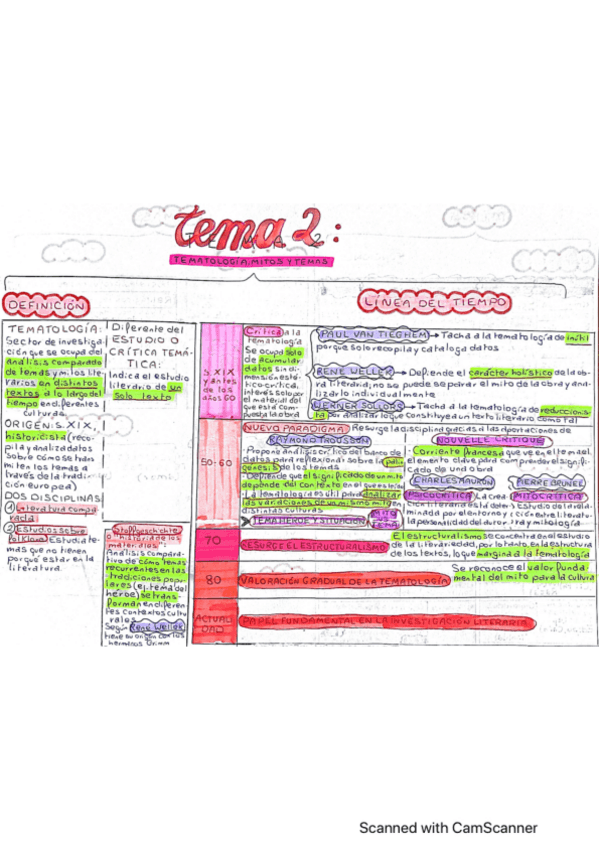 tema 2:
TEMA 2
TEMATOLOGÍA: MITOS Y TEMAS
DEFINICIÓN
TEMATOLOGÍA:
Sector de investiga
ción que se ocupa del
análisis comparado
de temas y mitos lite
rarios en distintos
textos a lo largo del
tiempo en diferentes
culturas
ORIGEN: S. XIX,
historicista (reco-
pila y analiza datos
sobre cómo se trans
miten los temas a
través de la tradi
ción europea)
DOS DISCIPLINAS:
1 Literatura compa
rada
2 Estudios sobre
folklore: Estudia te-
mas que no tienen
por qué estar en la
literatura.
Diferente del
ESTUDIO O
CRÍTICA TEMÁ-
TICA:
Indica el estudio
literario de un
solo texto
Stoffgeschichte
o "historia de los
materiales":
Análisis compara-
tivo de cómo temas
recurrentes en las
tradiciones popu
lares (ej. tema del
héroe) se trans-
forman en diferen
tes contextos cultu
rales
Según René Wellek
tiene su origen con los
hermanos Grimm
LÍNEA DEL TIEMPO
S. XIX
y antes
de los
años 60
Crítica a la
tematología
Se ocupa solo
de acumular
datos sin di-
mensión esté-
tico-crítica,
interés solo por
el material del
que está com-
puesta la obra
PAUL VAN TIEGHEM → Tacha a la tematología de inútil
porque solo recopila y cataloga datos
RENÉ WELLEK → Defiende el carácter holístico de la ob
ra literaria; no se puede separar el mito de la obra y ana-
lizarlo individualmente
WERNER SOLLORS → Tacha a la tematología de reduccionis
ta por analizar lo que constituye a un texto literario como tal
50-60
NUEVO PARADIGMA: Resurge la disciplina gracias a las aportaciones de
RAYMOND TROUSSON
- Propone análisis crítico del banco de
datos para reflexionar sobre la
de los temas
- Defiende que el significado de un mito
depende del contexto en el que se sitúa
- La tematología es útil para analizar
las variaciones de un mismo mito en
distintas culturas
TEMA HÉROE Y SITUACIÓN
NOUVELLE CRITIQUE
- Corriente francesa que ve en el tema el
elemento clave para comprender el signifi-
cado de una obra
CHARLES MAURON
PIERRE BRUNEL
PSICOCRÍTICA
MITOCRÍTICA
70
RESURGE EL ESTRUCTURALISMO
El estructuralismo se concentra en el estudio
de la literariedad, por lo tanto, en la estructura
de los textos, lo que margina a la tematología
80
VALORACIÓN GRADUAL DE LA TEMATOLOGÍA
Se reconoce el valor funda
mental del mito para la cultura
ACTUALI
DAD
PAPEL FUNDAMENTAL EN LA INVESTIGACIÓN LITERARIA
Scanned with CamScanner